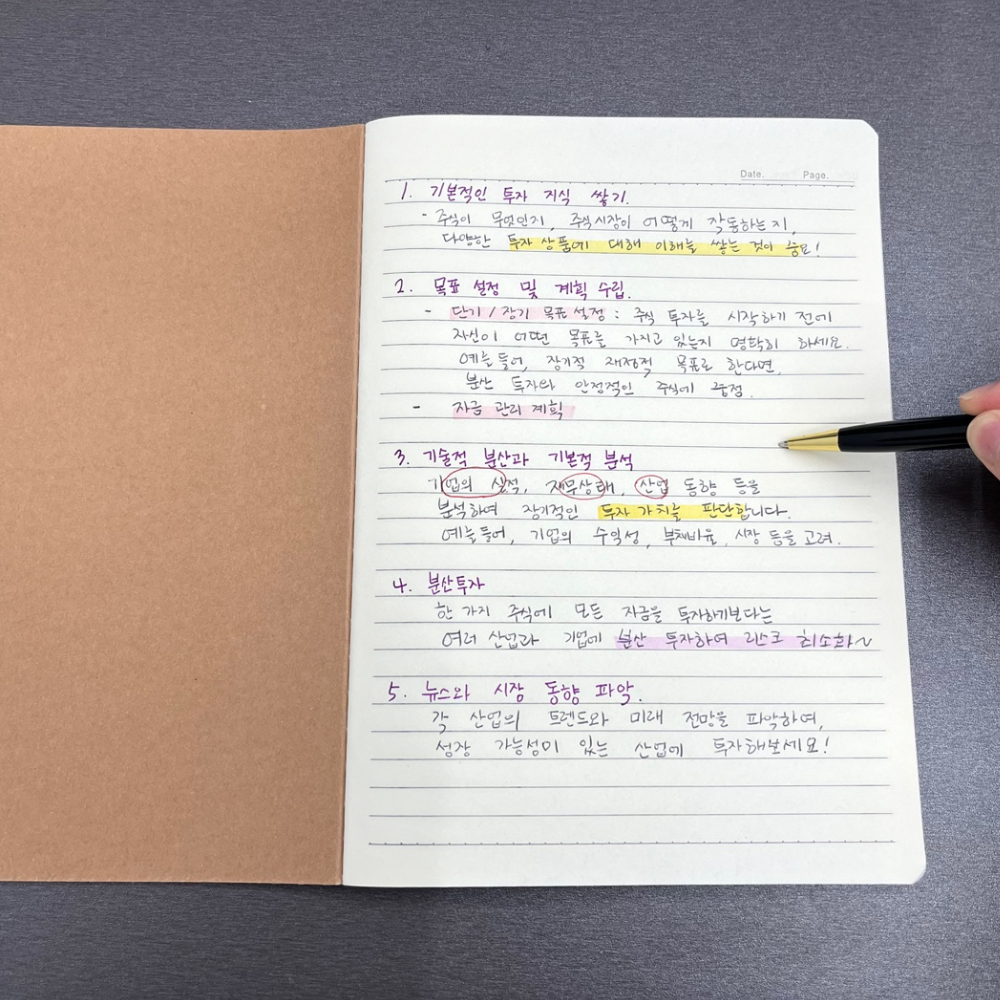 Date. Page.
1. 기본적인 투자 지식 쌓기.
- 주식이 무엇인지, 주식시장이 어떻게 작동하는지,
다양한 투자 상품에 대해 이해를 쌓는 것이 중요!
2. 목표 설정 및 계획 수립.
- 단기 / 장기 목표 설정 : 주식 투자를 시작하기 전에
자신이 어떤 목표를 가지고 있는지 명확히 하세요.
예를 들어, 장기적 재정적 목표로 한다면,
분산 투자와 안정적인 주식에 중점.
- 자금 관리 계획
3. 기술적 분산과 기본적 분석
기업의 실적, 재무상태, 산업 동향 등을
분석하여 장기적인 투자 가치를 판단합니다.
예를 들어, 기업의 수익성, 부채비율, 시장 등을 고려.
4. 분산투자
한 가지 주식에 모든 자금을 투자하기보다는
여러 산업과 기업에 분산 투자하여 리스크 최소화~
5. 뉴스와 시장 동향 파악.
각 산업의 트렌드와 미래 전망을 파악하여,
성장 가능성이 있는 산업에 투자해보세요!